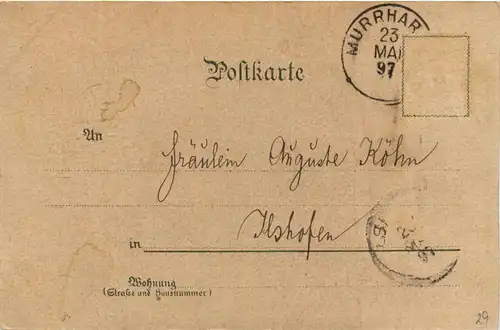 MURRHAR
23
MAI
97
Postkarte
An
Fräulein Auguste Köhn
in Ilshofen
Wohnung
(Straße und Hausnummer)
29